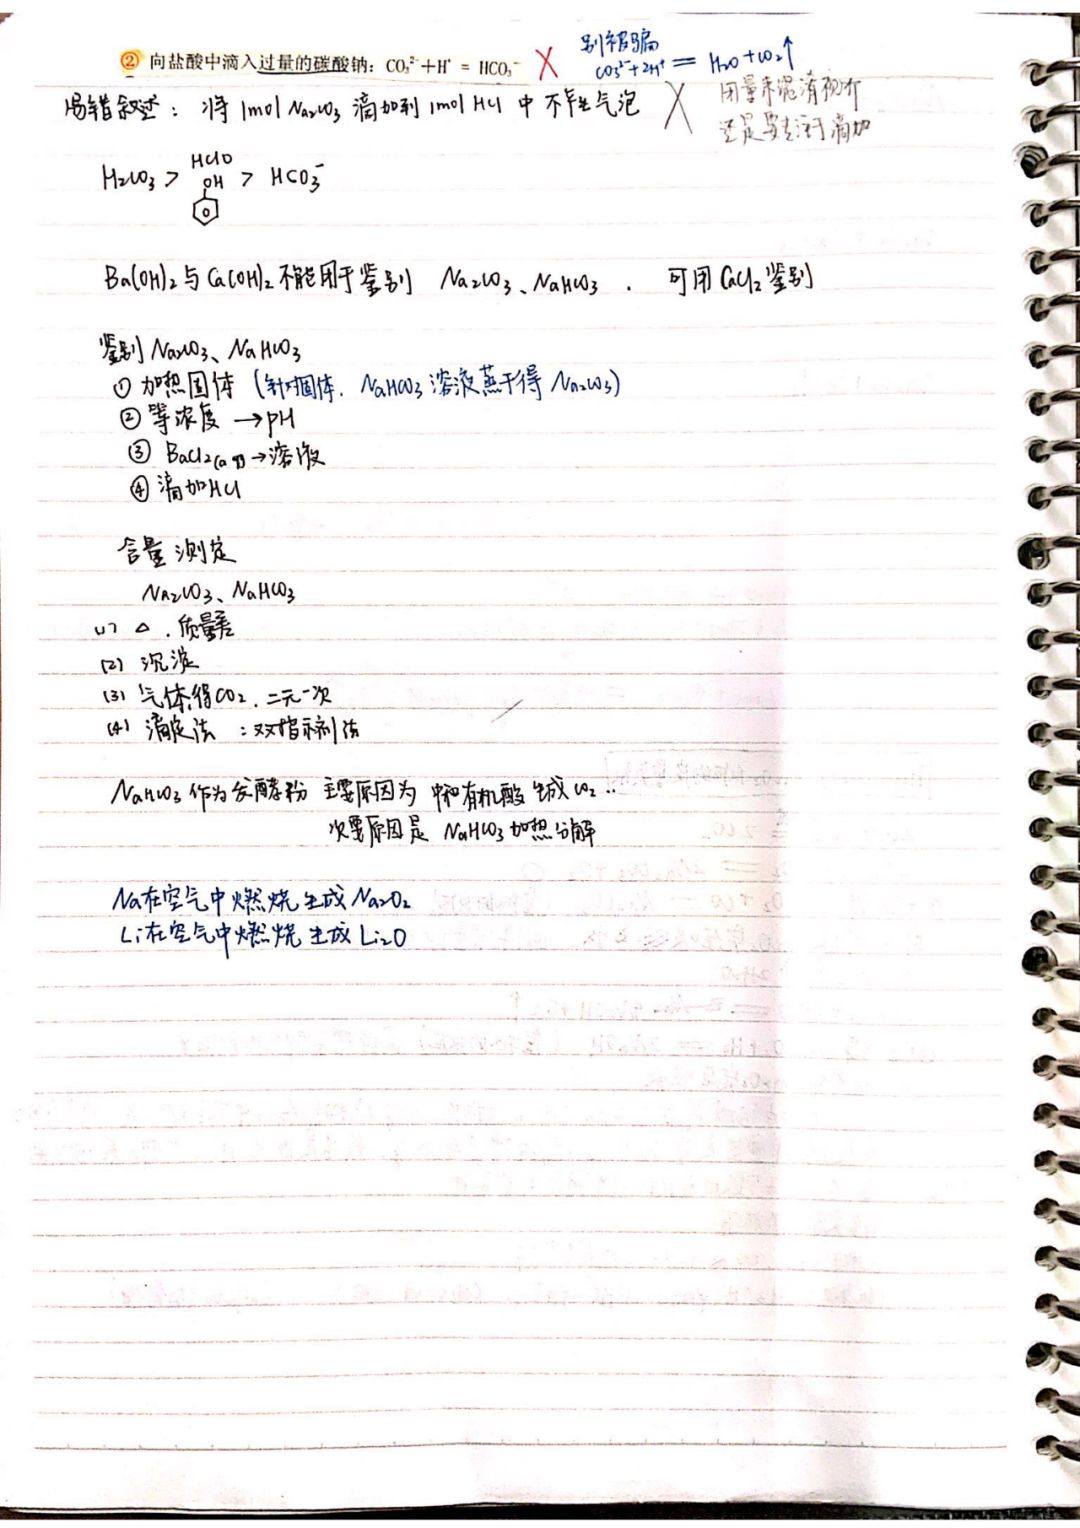 ② 向盐酸中滴入过量的碳酸钠：CO₃²⁻+H⁺ = HCO₃⁻ ╳ 别被骗
CO₃²⁻+2H⁺ = H₂O+CO₂↑
易错叙述：将1mol Na₂CO₃ 滴加到 1mol HCl 中不产生气泡 ╳ 用量来混淆视听
还是要关注于滴加
H₂CO₃ > HClO
OH > HCO₃⁻
Ba(OH)₂与Ca(OH)₂不能用于鉴别 Na₂CO₃、NaHCO₃． 可用CaCl₂鉴别
鉴别Na₂CO₃、NaHCO₃
① 加热固体（针对固体．NaHCO₃溶液蒸干得Na₂CO₃）
② 等浓度 →pH
③ BaCl₂(aq)→溶液
④ 滴加HCl
含量测定
Na₂CO₃、NaHCO₃
(1) △．质量差
(2) 沉淀
(3) 气体得CO₂．二元一次
(4) 滴定法：双指示剂法
NaHCO₃作为发酵粉 主要原因为 中和有机酸生成CO₂..
次要原因是 NaHCO₃加热分解
Na在空气中燃烧生成Na₂O₂
Li在空气中燃烧生成Li₂O